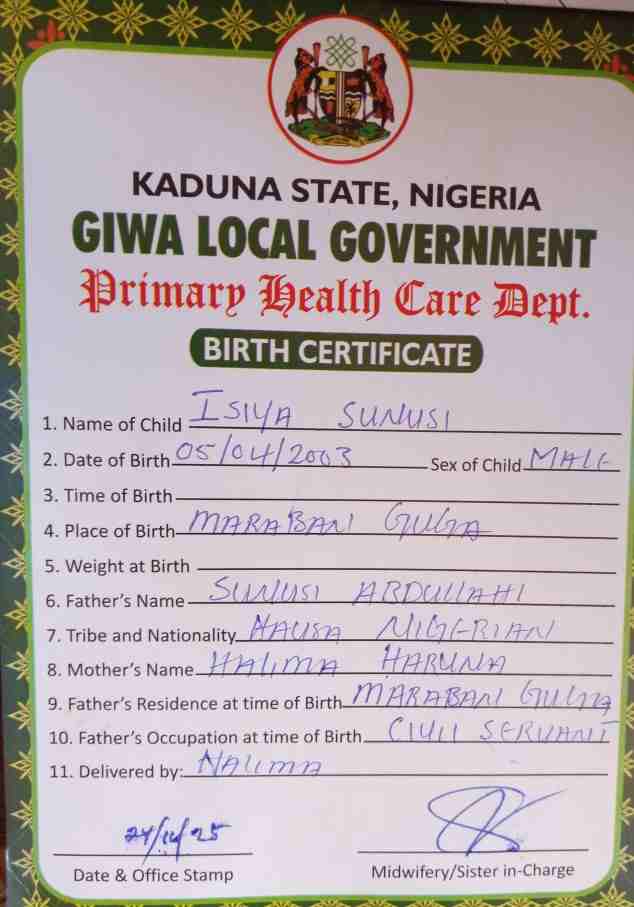 KADUNA STATE, NIGERIA
GIWA LOCAL GOVERNMENT
Primary Health Care Dept.
BIRTH CERTIFICATE
1. Name of Child ISIYA SUNUSI
2. Date of Birth 05/04/2003 Sex of Child MALE
3. Time of Birth
4. Place of Birth MARABAN GUGA
5. Weight at Birth
6. Father's Name SUNUSI ABDULLAHI
7. Tribe and Nationality HAUSA NIGERIAN
8. Mother's Name HALIMA HARUNA
9. Father's Residence at time of Birth MARABAN GUGA
10. Father's Occupation at time of Birth CIVIL SERVANT
11. Delivered by: HALIMA
Date & Office Stamp Midwifery/Sister in-Charge